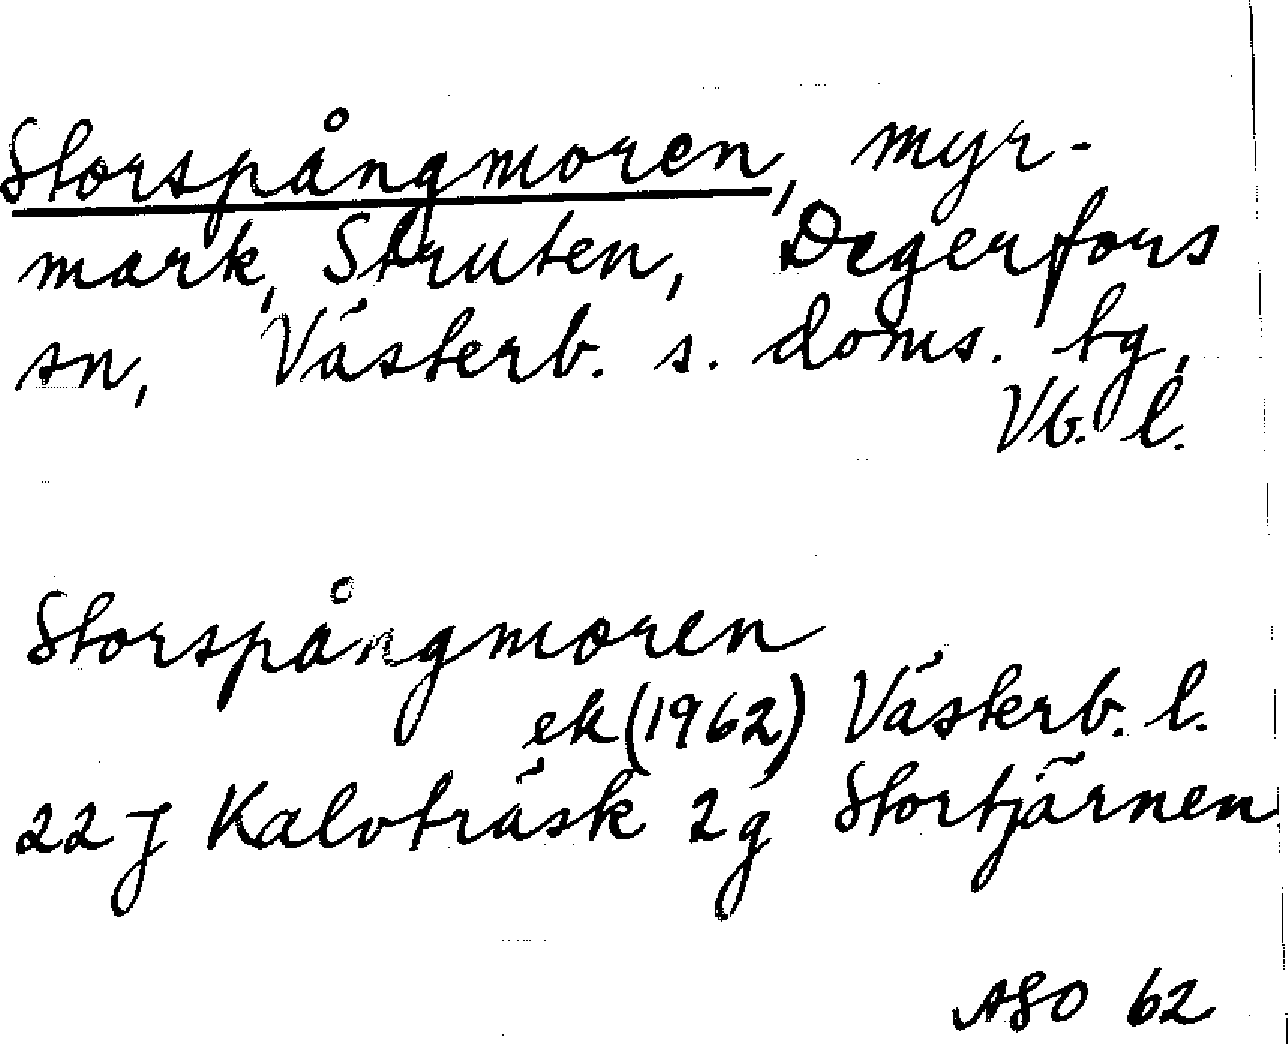 Storspångmoren, myr-
mark, Struten, Degerfors
sn, Västerb. s. doms. tg,
Vb. l.
Storspångmoren
ek (1962) Västerb. l.
22 J Kalvträsk 2g Stortjärnen
ASO 62